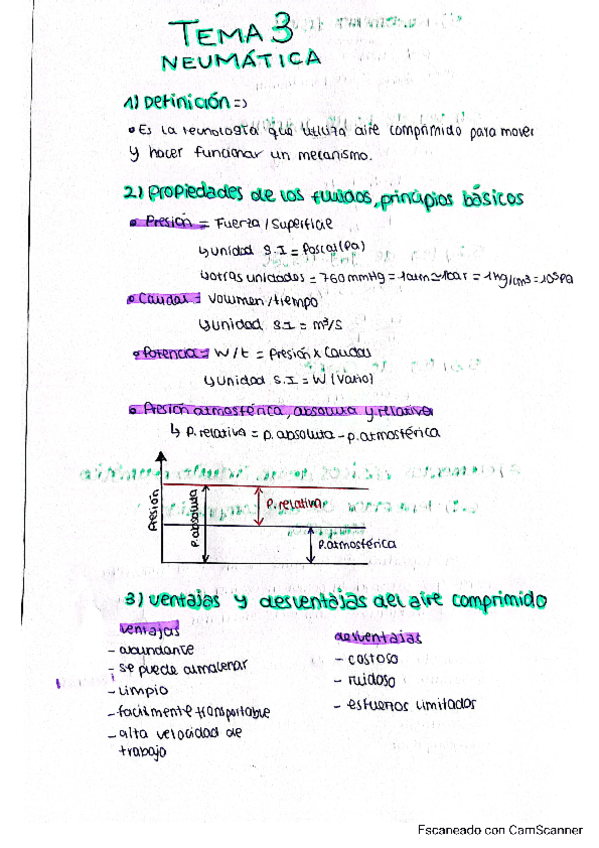 TEMA 3
NEUMÁTICA
1) Definición =>
• Es la tecnología que utiliza aire comprimido para mover
y hacer funcionar un mecanismo.
2) Propiedades de los fluidos, principios básicos
• Presión = Fuerza / Superficie
↳ unidad S.I = Pascal (Pa)
↳ otras unidades = 760 mmHg = 1 atm ≃ 1 bar = 1 kg/cm³ = 10⁵ Pa
• Caudal = Volumen / tiempo
↳ unidad S.I = m³/s
• Potencia = W / t = Presión x Caudal
↳ unidad S.I = W (Vatio)
• Presión atmosférica, absoluta y relativa
↳ p. relativa = p. absoluta - p. atmosférica
Presión
p. absoluta
p. relativa
p. atmosférica
3) ventajas y desventajas del aire comprimido
ventajas
- abundante
- se puede almacenar
- limpio
- facilmente transportable
- alta velocidad de
trabajo
desventajas
- costoso
- ruidoso
- esfuerzos limitados
Escaneado con CamScanner